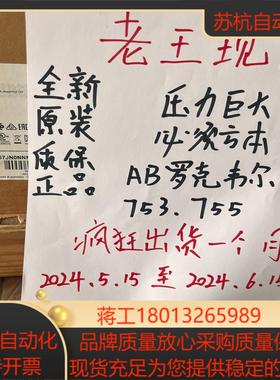 苏杭自动
老王现
全新
原装
质保
正品
压力巨大
必须亏本
AB罗克韦尔
753.755
疯狂出货一个月
2024.5.15 至 2024.6.15
蒋工18013265989
自动化
开票
品牌质量放心采购质量保
现货充足为您提供定制的